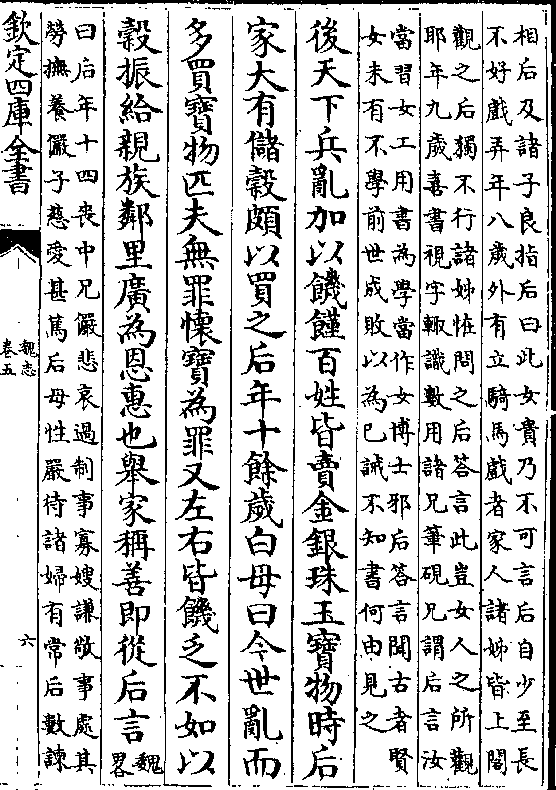 相后及諸子良指后曰此女貴乃不可言后自少至長
不好戲弄年八歲外有立騎馬戲者家人諸姊皆上閣
觀之后獨不行諸姊怪問之后答言此豈女人之所觀
耶年九歲喜書視字輒識數用諸兄筆硯兄謂后言汝
當習女工用書為學當作女博士邪后答言聞古者賢
女未有不學前世成敗以為己誡不知書何由見之
後天下兵亂加以饑饉百姓皆賣金銀珠玉寶物時后
家大有儲穀頗以買之后年十餘歲白母曰今世亂而
多買寶物匹夫無罪懷寶為罪又左右皆饑乏不如以
穀振給親族鄰里廣為恩惠也舉家稱善即從后言
魏
畧
曰后年十四喪中兄儼悲哀過制事寡嫂謙敬事處其
勞撫養儼子慈愛甚篤后母性嚴待諸婦有常后數諫
欽定四庫全書
魏志
卷五
六